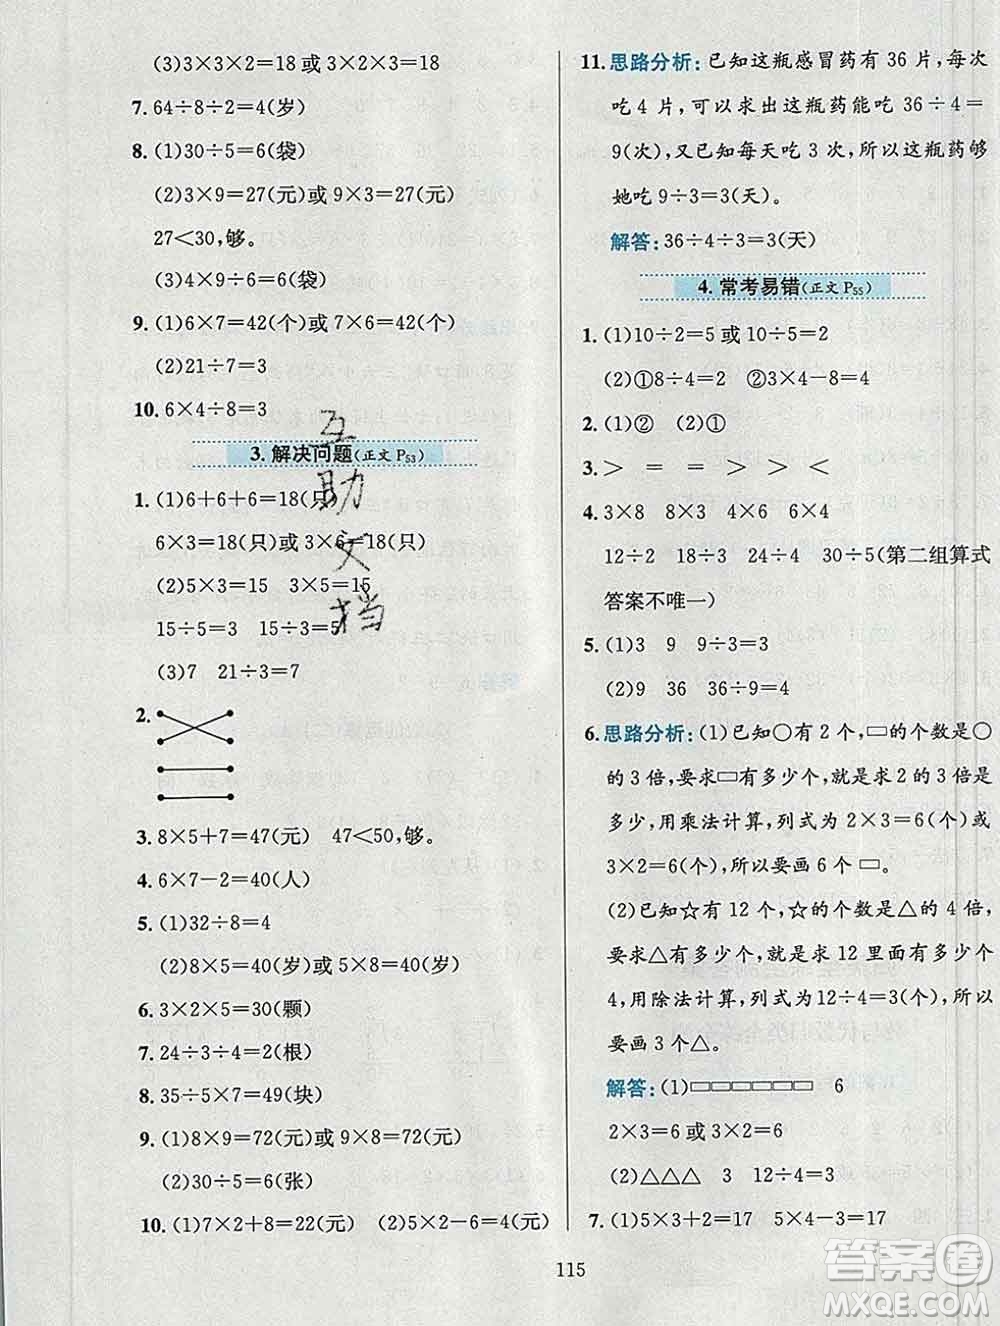 (3)3×3×2=18 或 3×2×3=18
7. 64÷8÷2=4(岁)
8. (1)30÷5=6(袋)
(2)3×9=27(元)或 9×3=27(元)
27<30,够。
(3)4×9÷6=6(袋)
9. (1)6×7=42(个)或 7×6=42(个)
(2)21÷7=3
10. 6×4÷8=3
3. 解决问题(正文 P53)
1. (1)6+6+6=18(只)
6×3=18(只)或 3×6=18(只)
(2)5×3=15 3×5=15
15÷5=3 15÷3=5
(3)7 21÷3=7
2.
3. 8×5+7=47(元) 47<50,够。
4. 6×7-2=40(人)
5. (1)32÷8=4
(2)8×5=40(岁)或 5×8=40(岁)
6. 3×2×5=30(颗)
7. 24÷3÷4=2(根)
8. 35÷5×7=49(块)
9. (1)8×9=72(元)或 9×8=72(元)
(2)30÷5=6(张)
10. (1)7×2+8=22(元) (2)5×2-6=4(元)
互助文档
11. 思路分析:已知这瓶感冒药有 36 片,每次
吃 4 片,可以求出这瓶药能吃 36÷4=
9(次),又已知每天吃 3 次,所以这瓶药够
她吃 9÷3=3(天)。
解答:36÷4÷3=3(天)
4. 常考易错(正文 P55)
1. (1)10÷2=5 或 10÷5=2
(2)①8÷4=2 ②3×4-8=4
2. (1)② (2)①
3. > = = > >
4. 3×8 8×3 4×6 6×4
12÷2 18÷3 24÷4 30÷5(第二组算式
答案不唯一)
5. (1)3 9 9÷3=3
(2)9 36 36÷9=4
6. 思路分析:(1)已知○有 2 个,▭的个数是○
的 3 倍,要求▭有多少个,就是求 2 的 3 倍是
多少,用乘法计算,列式为 2×3=6(个)或
3×2=6(个),所以要画 6 个 ▭。
(2)已知☆有 12 个,☆的个数是△的 4 倍,
要求△有多少个,就是求 12 里面有多少个
4,用除法计算,列式为 12÷4=3(个),所以
要画 3 个△。
解答:(1)▭▭▭▭▭▭ 6
2×3=6 或 3×2=6
(2)△△△ 3 12÷4=3
7. (1)5×3+2=17 5×4-3=17
115
答案圈
MXQE.COM